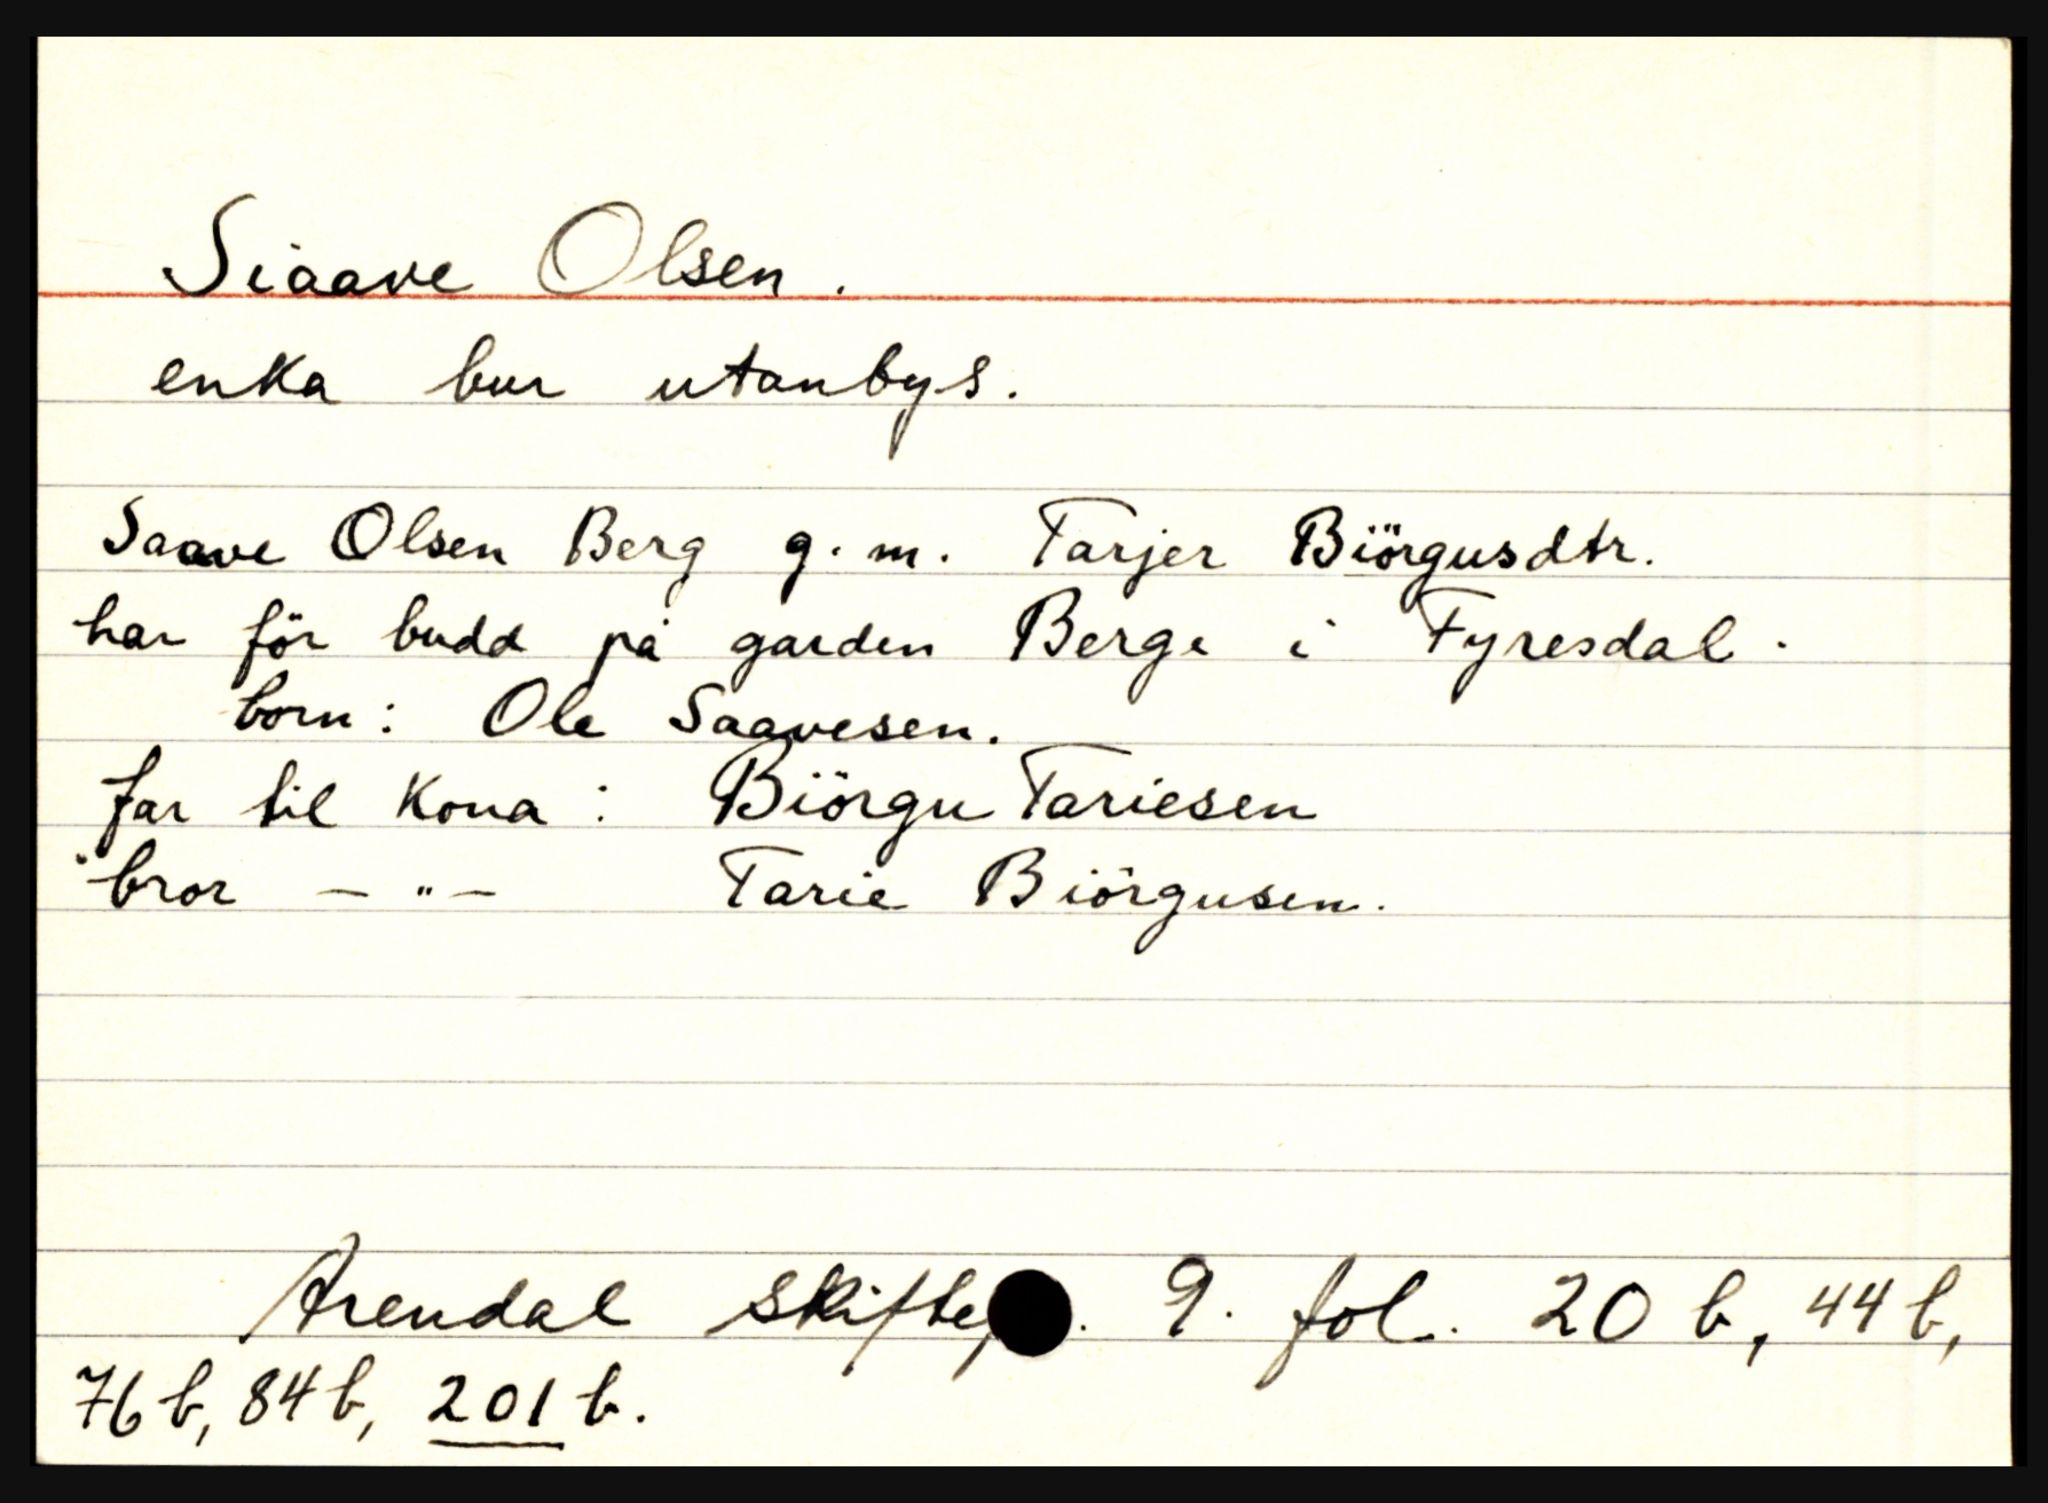 Siaave Olsen.
enka bur utanbys.
Saave Olsen Berg g. m. Tarjer Biörgusdtr.
har för budd på garden Berge i Fyresdal.
born: Ole Saavesen.
far til Kona: Biörgu Tariesen
bror — " — Tarie Biörgusen.
Arendal 9. fol. 20 b, 44 b,
76 b, 84 b, 201 b.